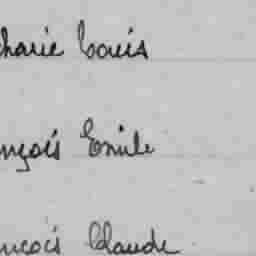 charie Louis
nçois Emile
nçois Claude